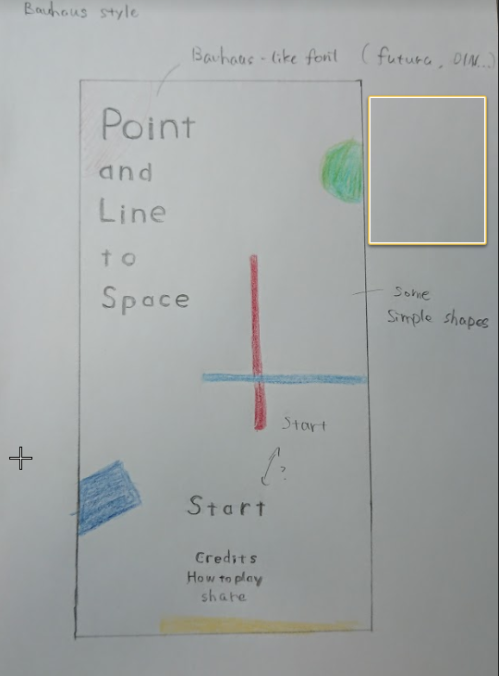 Bauhaus style
Bauhaus-like font (futura, DIN...)
Point
and
Line
to
Space
Some
Simple shapes
Start
?
Start
Credits
How to play
share